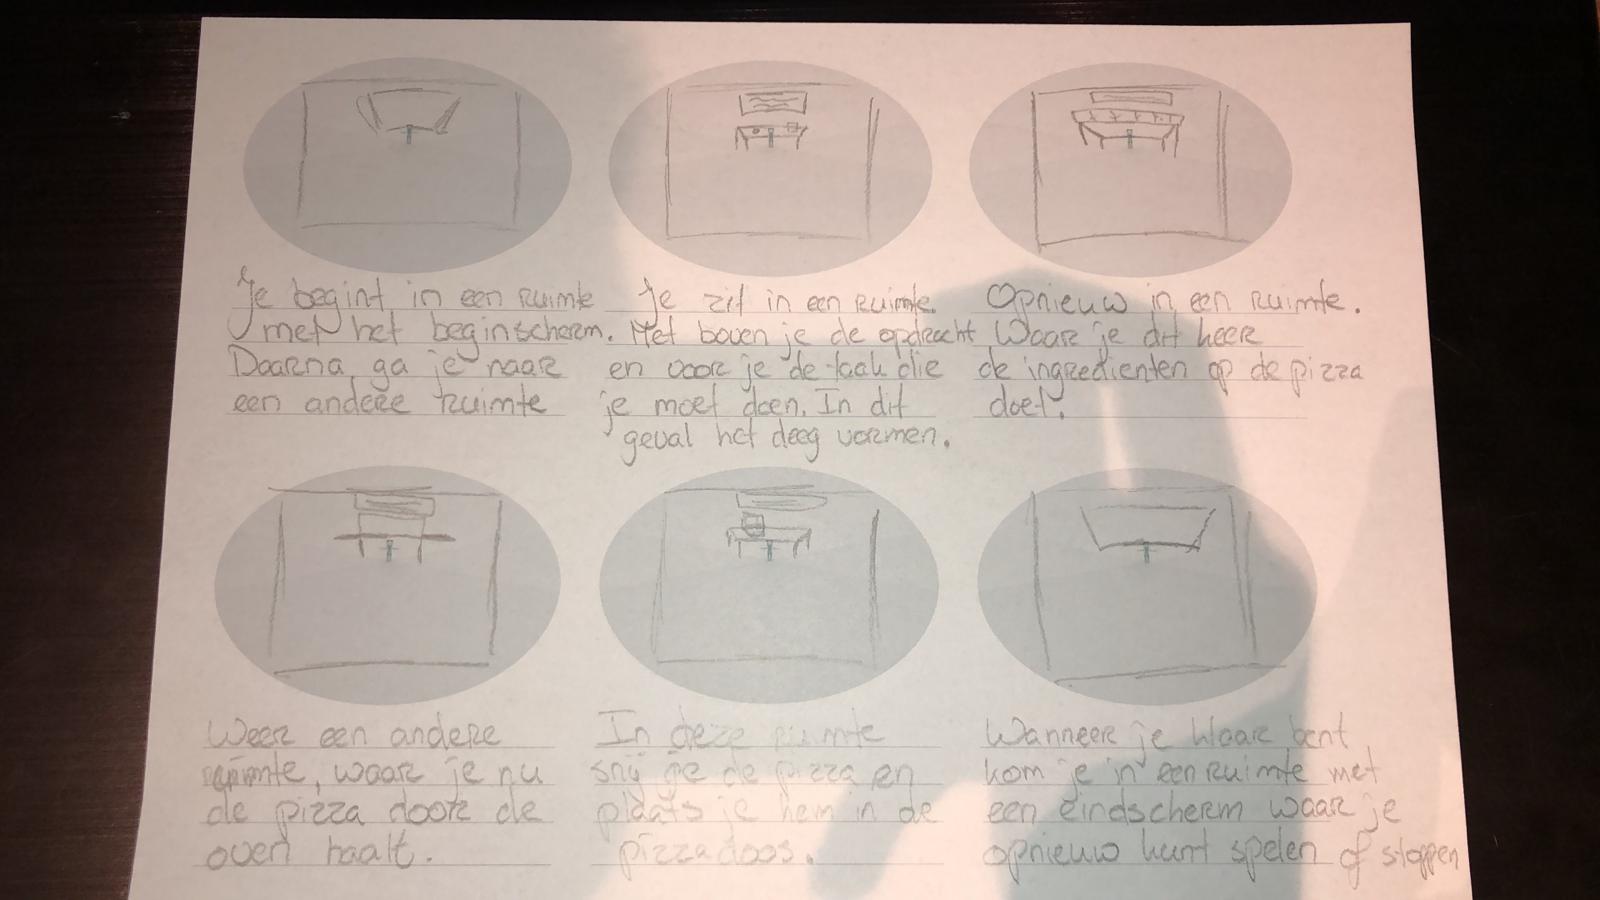 Je begint in een ruimte
met het beginscherm.
Daarna ga je naar
een andere ruimte
Je zit in een ruimte.
Met boven je de opdracht
en voor je de taak die
je moet doen. In dit
geval het deeg vormen.
Opnieuw in een ruimte.
Waar je dit keer
de ingredienten op de pizza
doet.
Weer een andere
ruimte, waar je nu
de pizza door de
oven haalt.
In deze ruimte
snij je de pizza en
plaats je hem in de
pizzadoos.
Wanneer je klaar bent
kom je in een ruimte met
een eindscherm waar je
opnieuw kunt spelen of stoppen